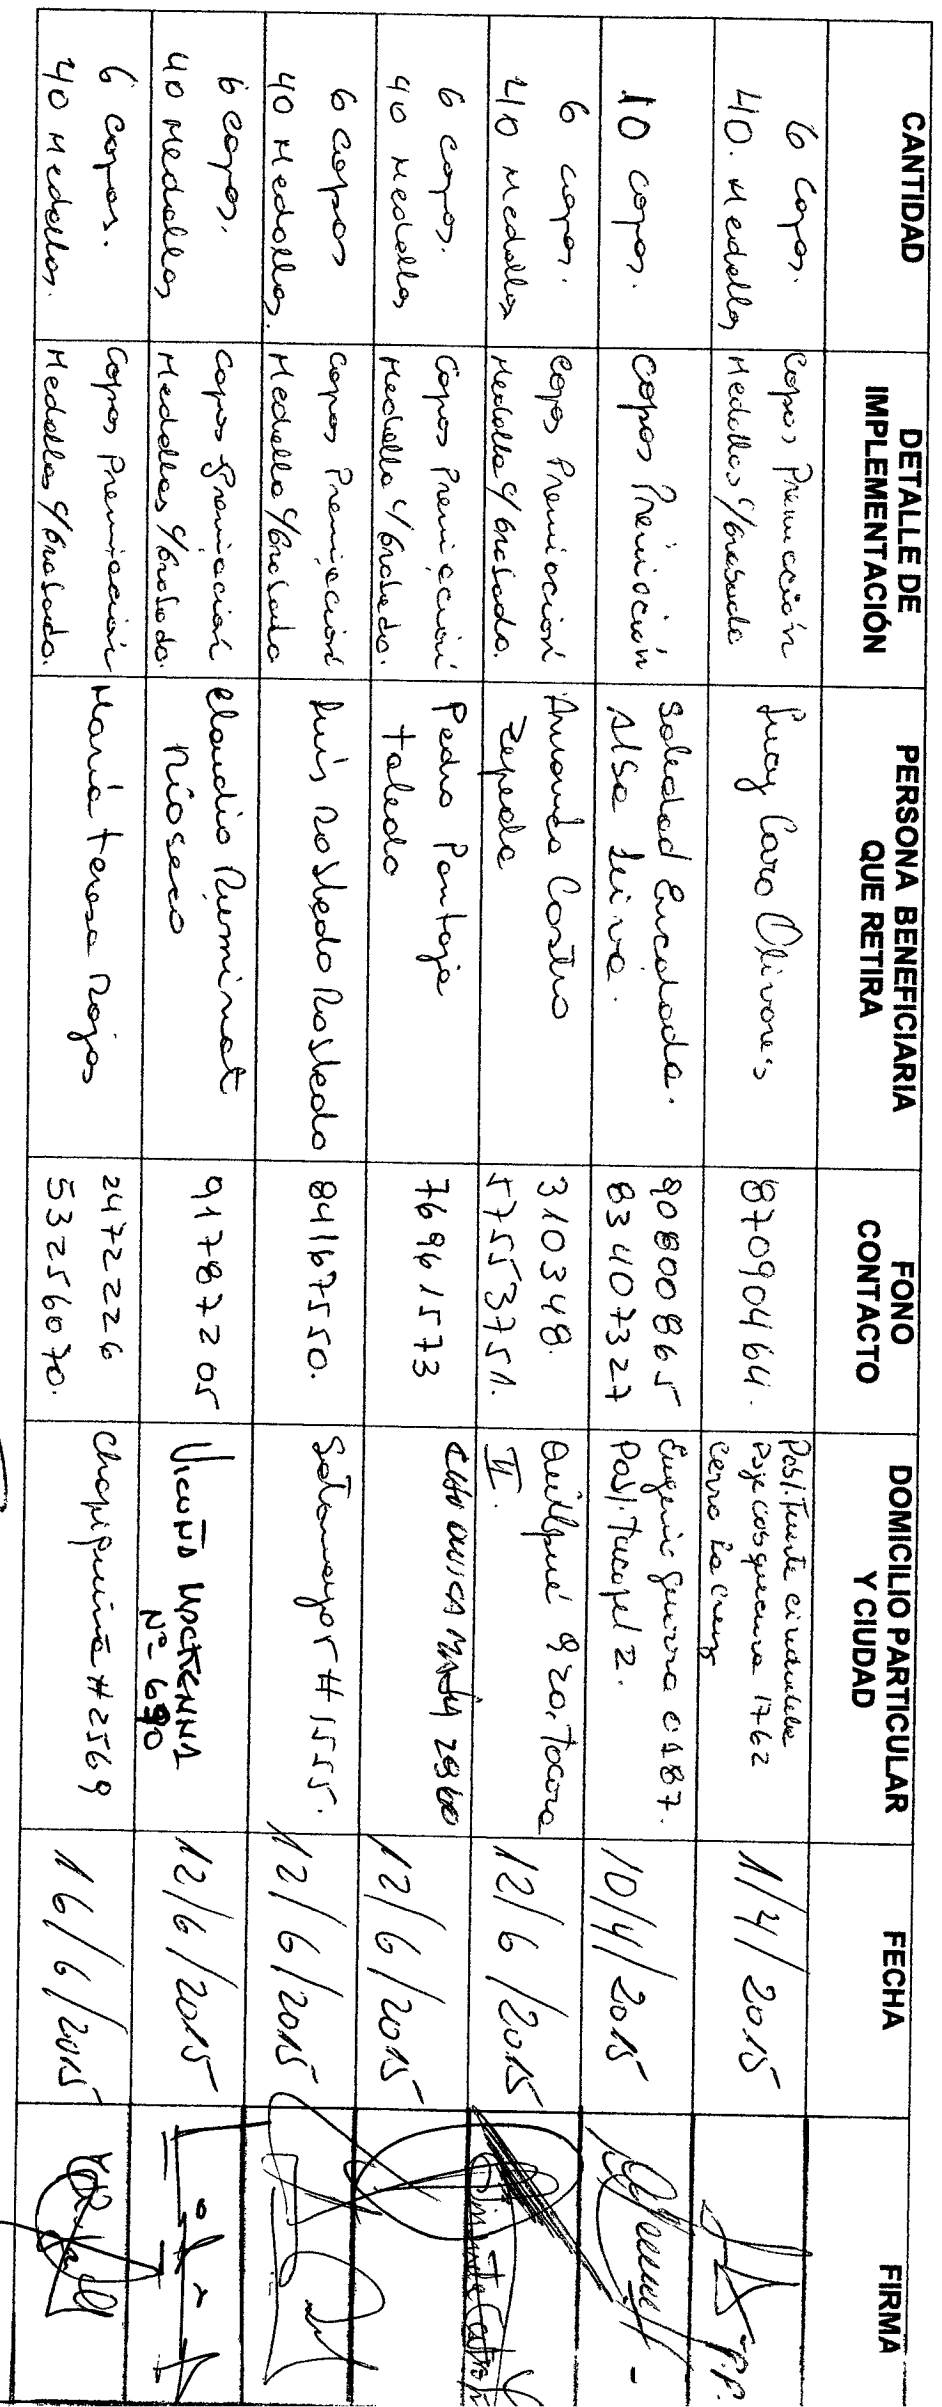 CANTIDAD
DETALLE DE
IMPLEMENTACIÓN
PERSONA BENEFICIARIA
QUE RETIRA
FONO
CONTACTO
DOMICILIO PARTICULAR
Y CIUDAD
FECHA
FIRMA
6 Copas.
40. Medallas
Copas Premiación
Medallas c/Grabado
Lucy Caro Olivares
87090464.
Pobl. Fuente
Psje Cosquecura 1762
Cerro La Cruz
1/4/2015
10 Copas.
Copas Premiación
Soledad Encalada.
Alsa Leiva.
90800865
83407327
Eugenio Guerra 0187.
Pobl. Tucapel 2.
10/4/2015
6 copas.
40 Medallas
Copas Premiación
Medalla c/Grabado.
Armando Castro
Zepeda
310348.
57553751.
Quillpué 920, Tocora
II.
12/6/2015
6 copas.
40 Medallas
Copas Premiación
Medalla c/Grabado.
Pedro Pantoja
Toledo
76961573
2960
12/6/2015
6 copas
40 Medallas.
Copas Premiación
Medalla c/Grabado
Luis Robledo Robledo
84167550.
Sotomayor # 1555.
12/6/2015
6 copas.
40 Medallas
Copas Premiación
Medallas c/Grabado.
Claudio
Rioseco
91787205
Vicuña Mackenna
Nº 690
12/6/2015
6 copas.
40 Medallas.
Copas Premiación
Medallas c/Grabado.
María Teresa Rojas
2472226
53256070.
Chapiquiña # 2569
16/6/2015